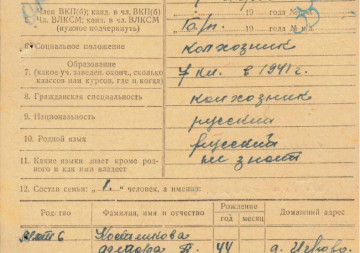 Член ВКП(б); канд. в чл. ВКП(б) 19 года № п/б
5. Чл. ВЛКСМ; канд. в чл. ВЛКСМ
(нужное подчеркнуть) 19 года № п/б
6. Социальное положение колхозник
Образование
7. (какое уч. заведен. окончил, сколько
классов или курсов, где и когда) 7 кл. в 1941 г.
8. Гражданская специальность колхозник
9. Национальность русский
10. Родной язык русский
11. Какие языки знает кроме род-
ного и как ими владеет не знает
12. Состав семьи: „1." человек, а именно:
Родство Фамилия, имя и отчество Рождение Домашний адрес
год месяц
мать
Костикова
44 д.